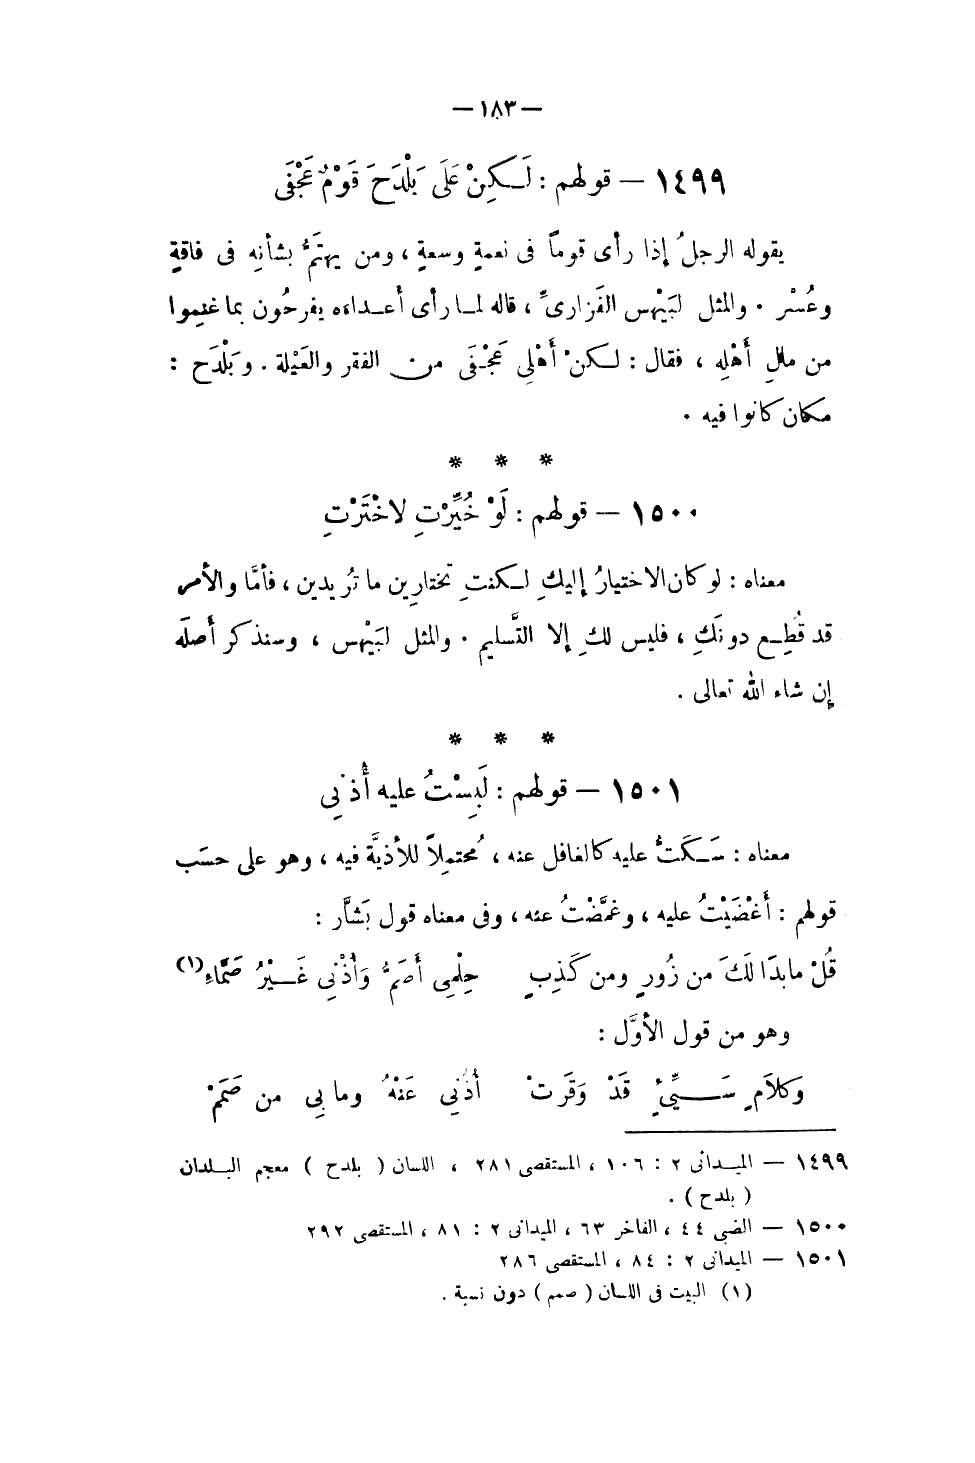 — ١٨٣ —
١٤٩٩ — قولهم : لَـكِنْ عَلَى بَلْدَحَ قَوْمٌ عَجْفَى
يقوله الرجلُ إذا رأى قوماً فى نعمةٍ وسعةٍ ، ومن يهتَمُّ بشأنِه فى فاقةٍ
وعُسْر . والمثل لبَيْهس الفَزارىِّ ، قاله لمـا رأى أعـداءَه يفرحُون بما غنِموا
من مالِ أهْلِه ، فقال : لـكنْ أهْلِى عَجْـفَى من الفقر والعَيْلة . وبَلْدَح :
مكان كانوا فيه .
* * *
١٥٠٠ — قولهم : لَوْ خُيِّرْتِ لاخْتَرْتِ
معناه : لو كان الاختيارُ إليكِ لـكنتِ تختارِين ما تُريدين ، فأمَّا والأمر
قد قُطِـع دونَكِ ، فليس لكِ إلا التَّسليم . والمثل لبَيْهس ، وسنذكر أصلَه
إن شاء الله تعالى .
* * *
١٥٠١ — قولهم : لَبِسْتُ عليه أُذنِى
معناه : سَـكَتُّ عليه كالغافل عنه ، مُحتمِلاً للأذيَّة فيه ، وهو على حسَب
قولهم : أغْضَيْتُ عليه ، وغمَّضْتُ عنه ، وفى معناه قول بَشَّار :
قُلْ ما بدَا لَكَ من زُورٍ ومن كَذِبٍ حِلْمِى أَصَمُّ وَأُذْنِى غَـيْرُ صَمَّاءِ(١)
وهو من قول الأوَّل :
وَكلاَمٍ سَـيِّىءٍ قَدْ وَقَرَتْ أُذُنِى عَنْهُ وما بِى من صَمَمْ
١٤٩٩ — الميـدانى ٢ : ١٠٦ ، المستقصى ٢٨١ ، اللسان ( بلدح ) معجم البـلدان
( بلدح ) .
١٥٠٠ — الضبى ٤٤ ، الفاخر ٦٣ ، الميدانى ٢ : ٨١ ، المستقصى ٢٩٢
١٥٠١ — الميدانى ٢ : ٨٤ ، المستقصى ٢٨٦
(١) البيت فى اللسان ( صمم ) دون نسبة .